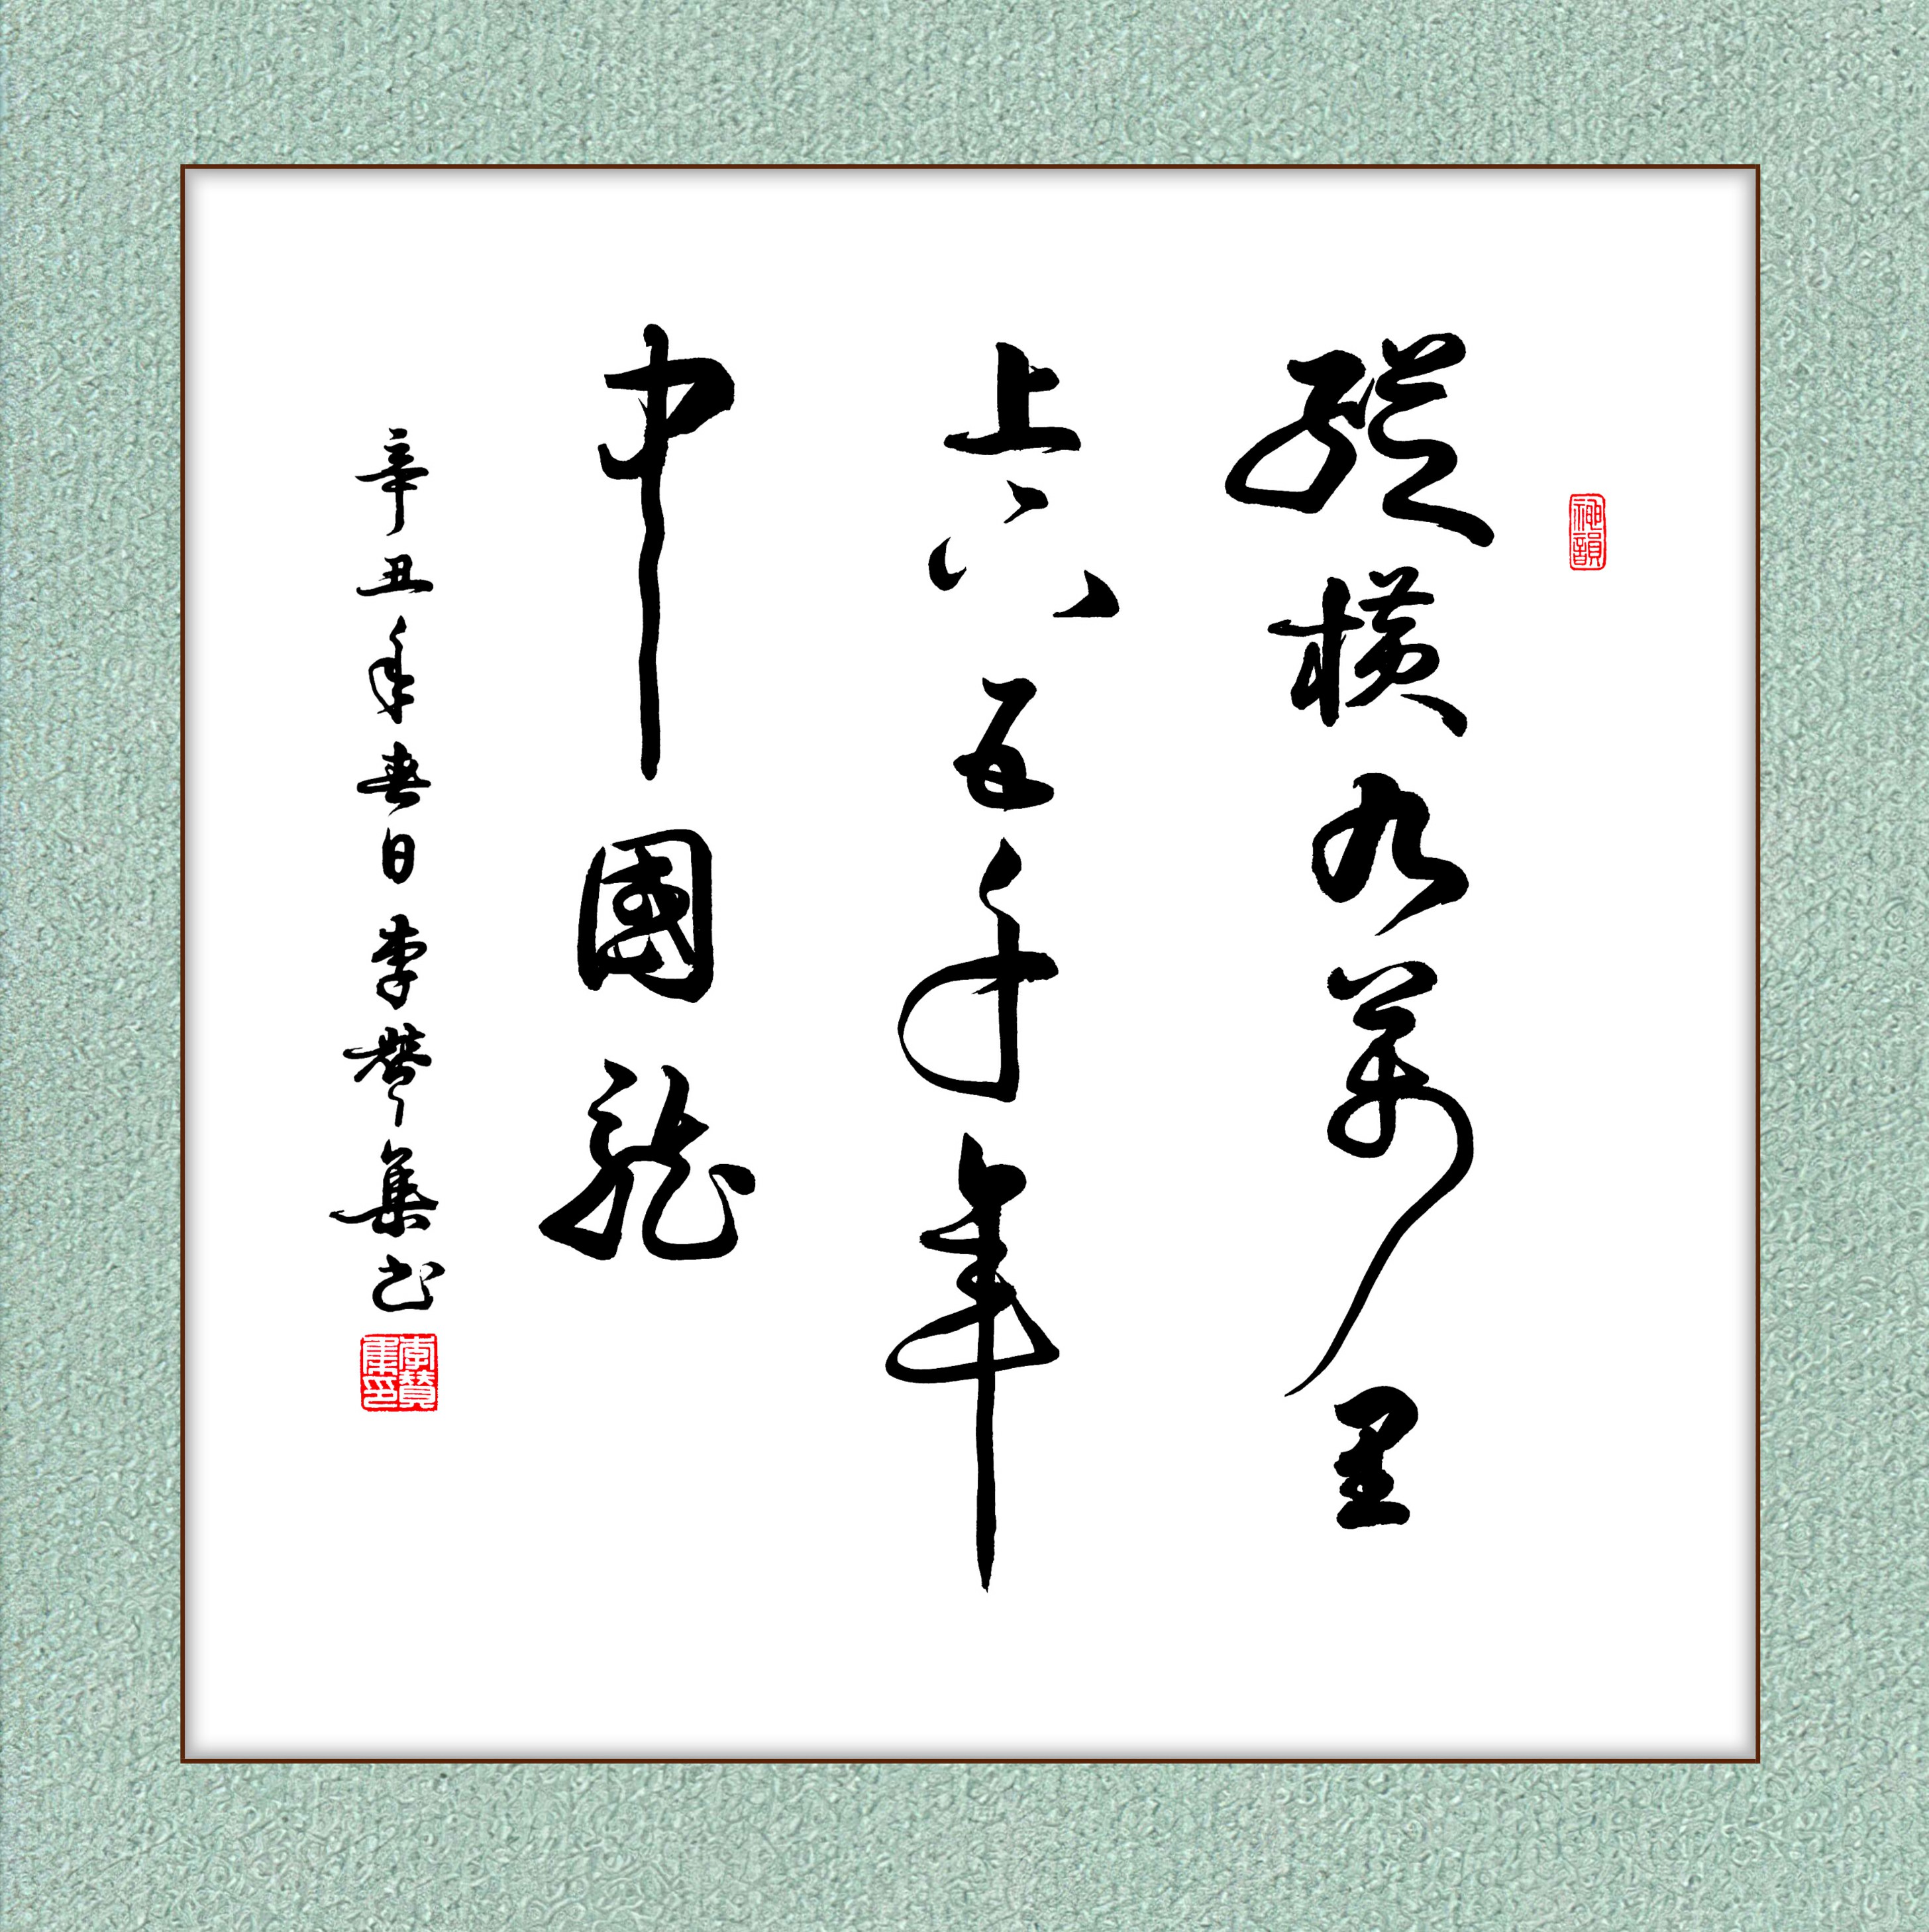 神韻
縱橫九萬里
上下五千年
中國龍
辛丑年春日李贊集書
李贊集印